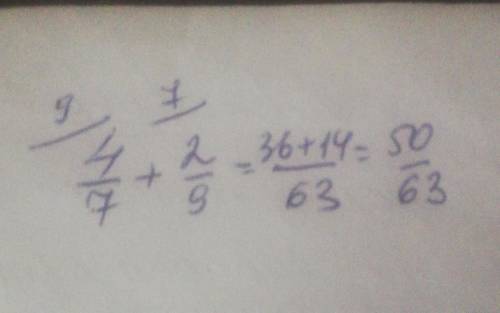 9 7
4/7 + 2/9 = 36+14/63 = 50/63